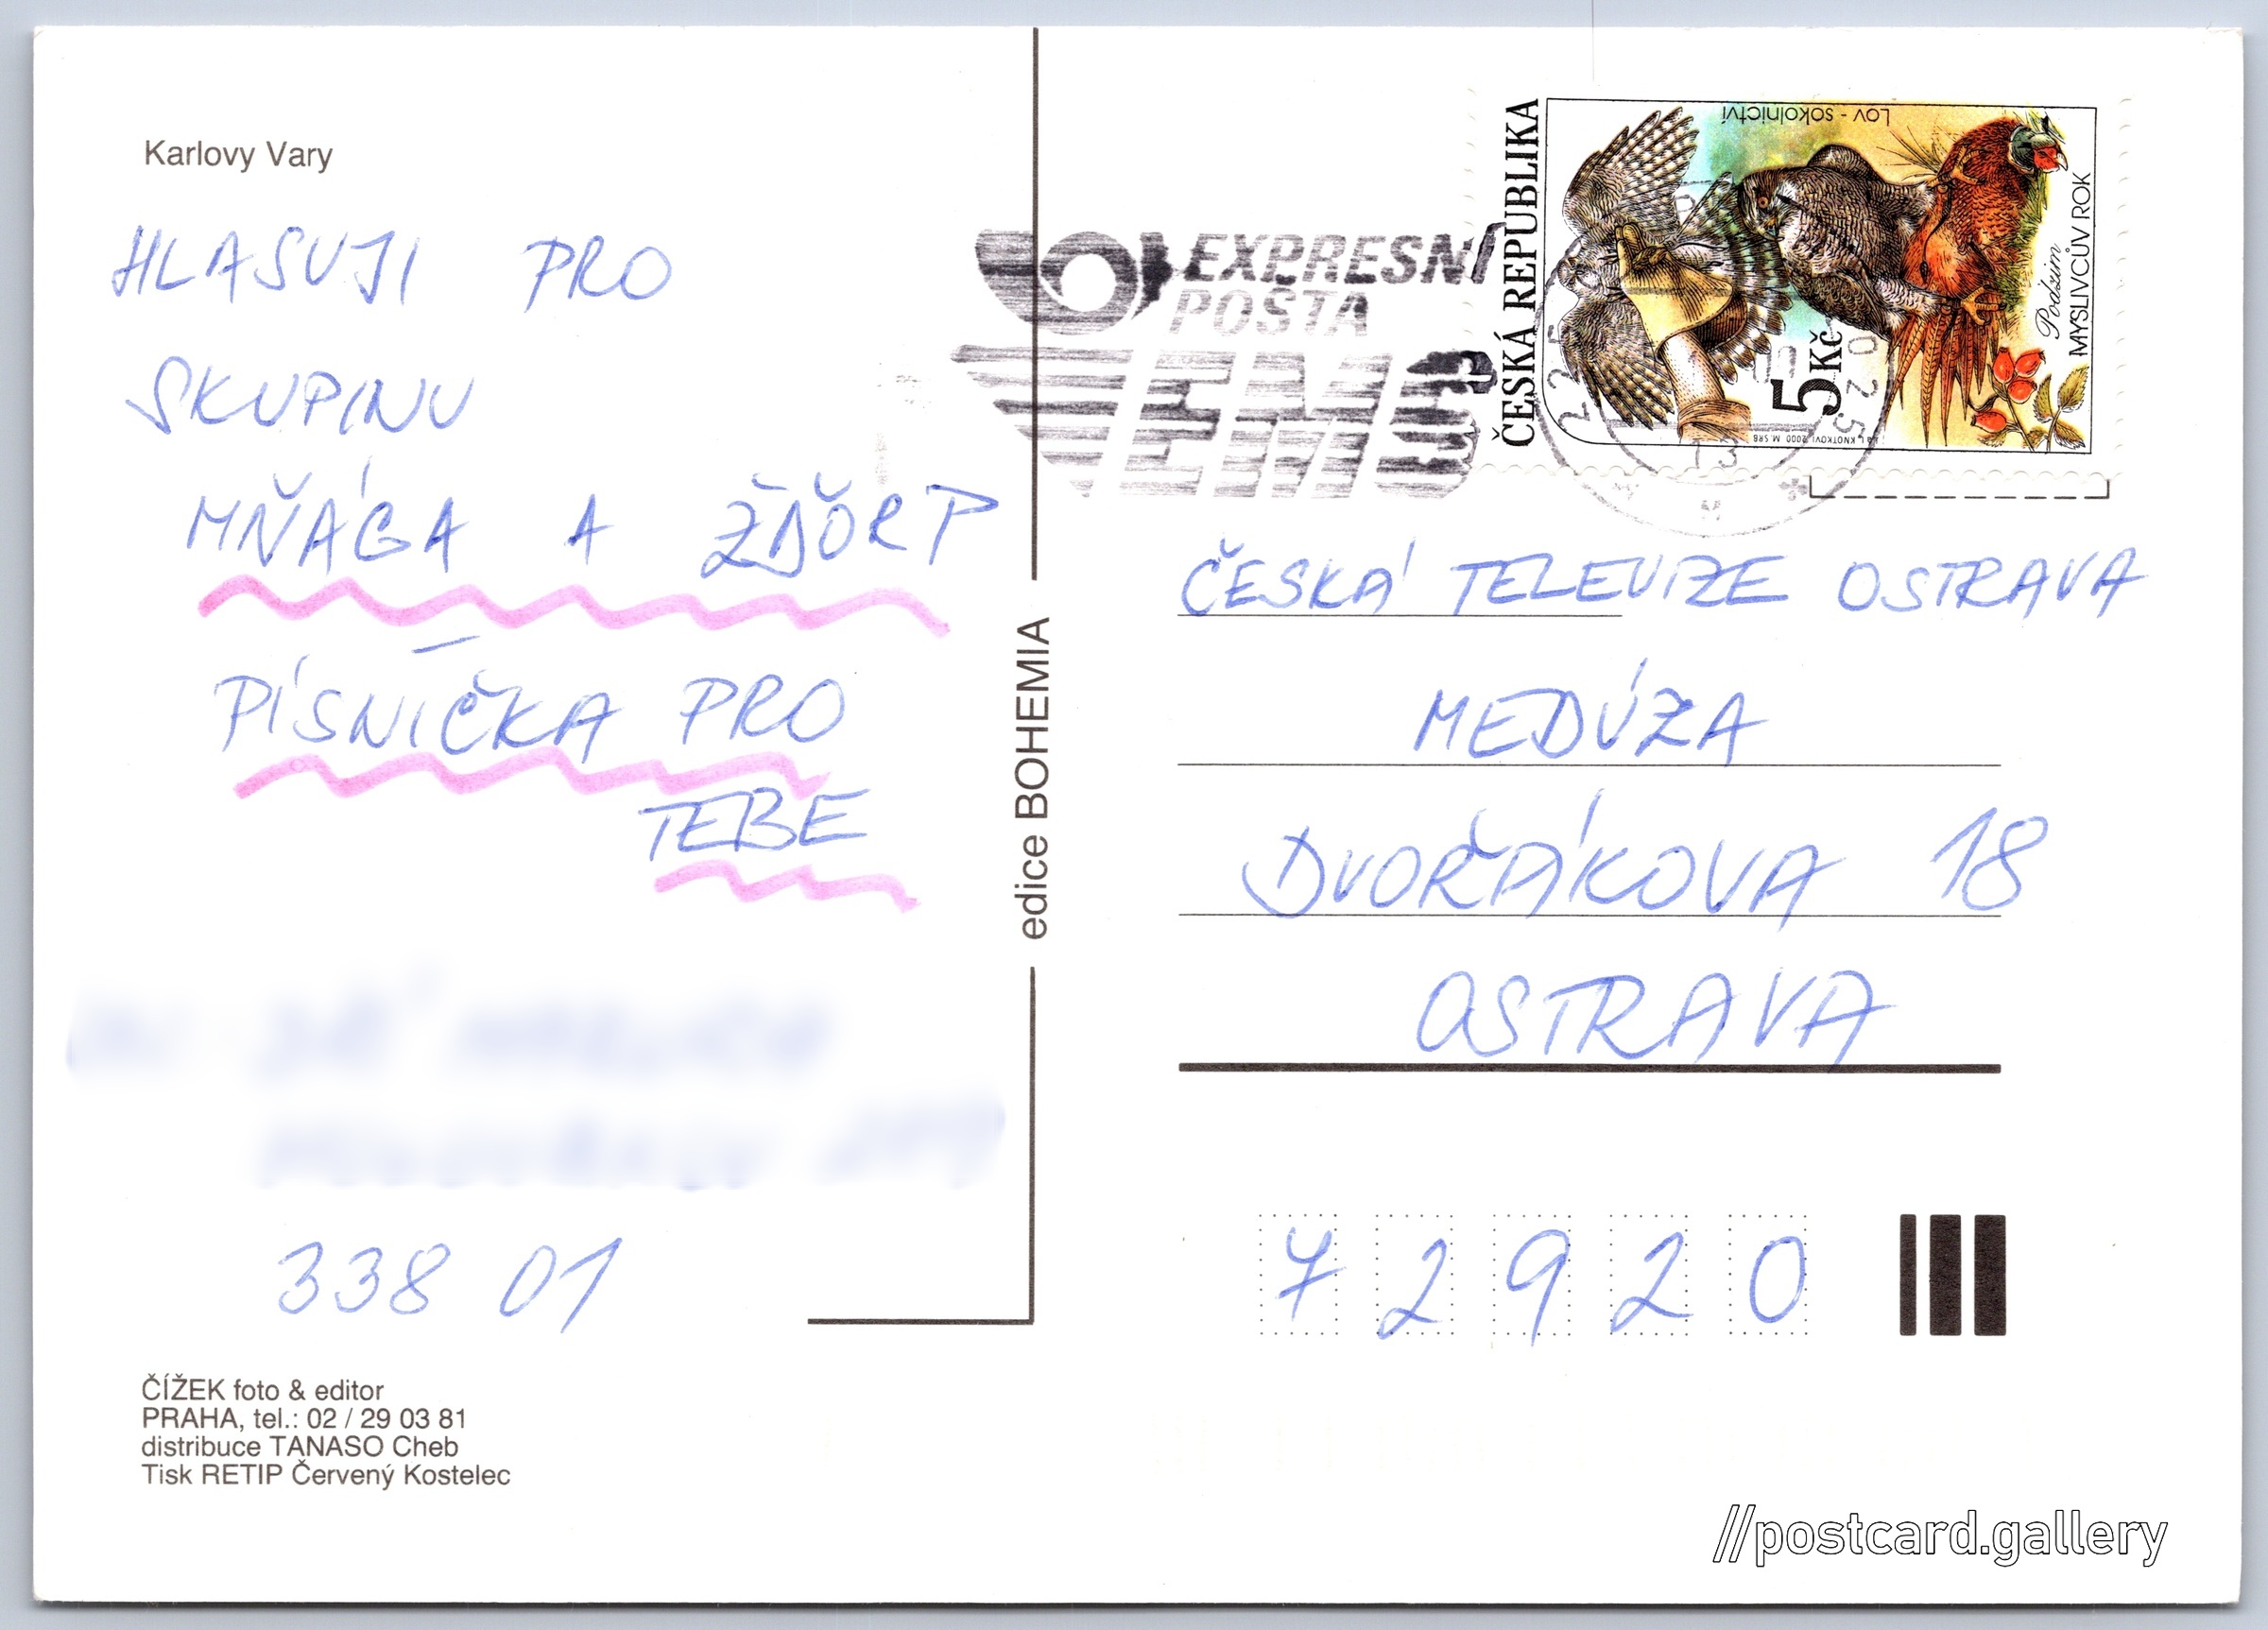 Karlovy Vary
HLASUJI PRO
SKUPINU
MŇÁGA A ŽĎORP
PÍSNIČKA PRO
TEBE
338 01
ČÍŽEK foto & editor
PRAHA, tel.: 02 / 29 03 81
distribuce TANASO Cheb
Tisk RETIP Červený Kostelec
edice BOHEMIA
EXPRESNÍ
POŠTA
EMS
ČESKÁ REPUBLIKA
Lov - sokolnictví
Podzim
MYSLIVCŮV ROK
5 Kč
KNOTKOVI 2000 M. SRB
ČESKÁ TELEVIZE OSTRAVA
MEDÚZA
DVOŘÁKOVA 18
OSTRAVA
72920
//postcard.gallery